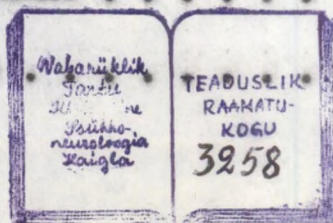 Wabariiklik
Tartu
Psühho-
neuroloogia
Haigla
TEADUSLIK
RAAMATU-
KOGU
3258